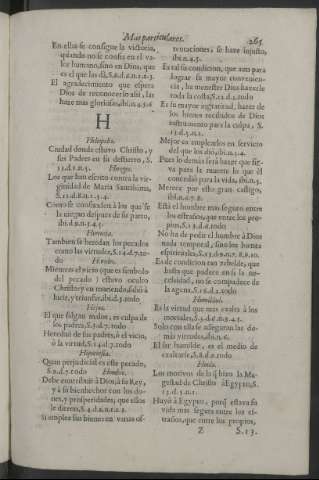 Mas particulares. 265
En ellas se consigue la victoria,
quando no se confia en el va-
lor humano, sino en Dios, que
es el que las dà, S.4.d.2.n.2.3.
El agradecimiento que espera
Dios de reconocerlo assi, las
haze mas gloriosas, ibi.n.4.5.6
H
Heliopolis.
Ciudad donde estuvo Christo, y
sus Padres en su destierro, S.
13.d.1.n.5. Hereges.
Los que han escrito contra la vir-
ginidad de Maria Santissima,
S.11.d.8.n.1.3.4.
Como se confundirà à los que se
la niegan despues de su parto,
ibi.d.9.n.3.4.5.
Herencia.
Tambien se heredan los pecados
como las virtudes, S.14.d.7.to-
do Herodes.
Mientras el vicio que es simbolo
del pecado) estuvo oculto
Christo, y en muriendo saliò à
lucir, y triunfar, ibi.d.5.todo
Hijos.
El que salgan malos, es culpa de
los padres, S.3.d.7.todo
Heredan de sus padres, ò el vicio,
ò la virtud, S.14.d.7.todo
Hipocresia.
Quan perjudicial es este pecado,
S.2.d.7.todo Hombre.
Debe contribuir à Dios, à su Rey,
y à su bienhechor con los do-
nes, y prosperidades, que ellos
le dieren, S.4.d.2.n.1.2.
Si emplea sus bienes en varias os-
tentaciones, se haze injusto,
ibi.n.4.5.
Es tal su condicion, que aun para
lograr su mayor convenien-
cia, ha menester Dios hazerle
toda la costa, S.12.d.2.todo
Es su mayor ingratitud, hazer de
los bienes recibidos de Dios
instrumento para la culpa, S.
13.d.5.n.2.
Mejor es emplearlos en servicio
del que los diò, ibi.n.3.4.
Pues lo demàs serà hazer que sir-
va para la muerte lo que èl
concediò para la vida, ibi.n.5.
Merece por esto gran castigo,
ibi.n.6.7.8.
Està el hombre mas seguro entre
los estraños, que entre los pro-
pios, S.13.d.4.todo
No ha de pedir el hombre à Dios
nada temporal, sino los bienes
espirituales, S.15.d.9.n.7.8.9.10.
Es de condicion tan rebelde, que
hasta que padece en sì la ne-
cessidad, no se compadece de
la agena, S.16.d.2.todo
Humildad.
Es la virtud que mas exalta à los
mortales, S.3.d.8.n.3.4.5.
Solo con ella se asseguran las de-
màs virtudes, ibi.n.6.
El ser humilde, es el medio de
exaltarse, S.8.d.9.todo
Huida.
Los motivos de la q̃ hizo la Ma-
gestad de Christo à Egypto, S.
13.d.3.n.1.
Huyò à Egypto, porq̃ estava su
vida mas segura entre los es-
traños, que entre los propios,
Z S.13.